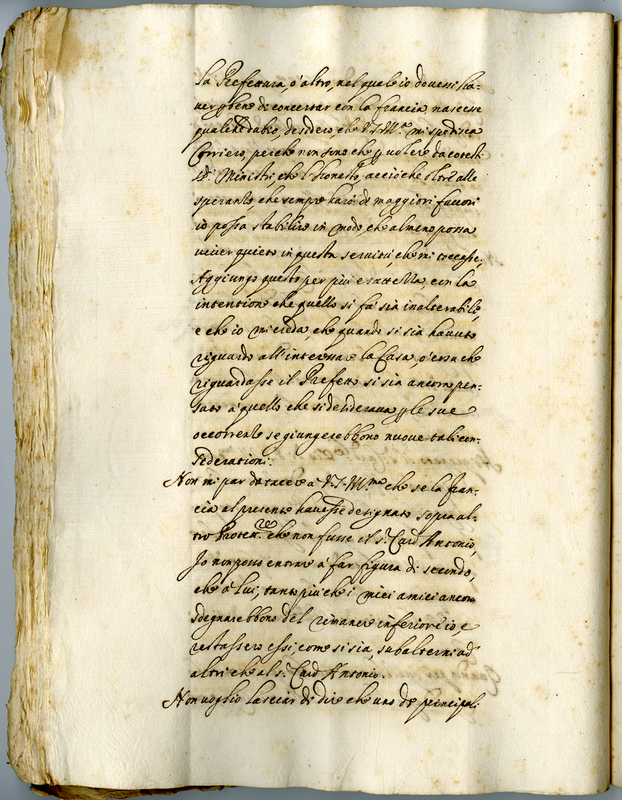 la Prefettura, ò altro, nel quale io dovessi ha-
ver bene di concertar con la francia nascesse
qualche dubio, desidero, che V.S.Ill.ma mi spedisca
Corriero, perche non sono che p volere da cotesti
Ministri, che l'honesto, acciò che oltre alle
speranze che sempre harò di maggiori favori
io possa stabilire in modo che almeno possa
viver quieto in questa servitù, che mi toccasse,
Aggiungo questo per più esattezza, con la
intentione che quello si fa sia inalterabile,
e che io mi creda, che quando si sia havuto
riguardo all'interessare la Casa, ò cosa che
riguardasse il Prefetto si sia ancora pen-
sato à quello che si desiderava p le sue
occorrenze se giungerebbono nuove tali con-
siderationi.
Non mi par da tacere à V.S.Ill.ma che se la fran-
cia al presente havesse designato sopra al-
tro Protett.re che non fusse il s.r Card Antonio,
Io non posso entrare à far figura di secondo,
che à lui, tanto più che i miei amici ancora
sdegnarebbono del rimanere inferiore io, e
restassero essi, come si sia, subalterni ad
altri che al s.r Card Antonio.
Non voglio lasciar di dire che uno de principali